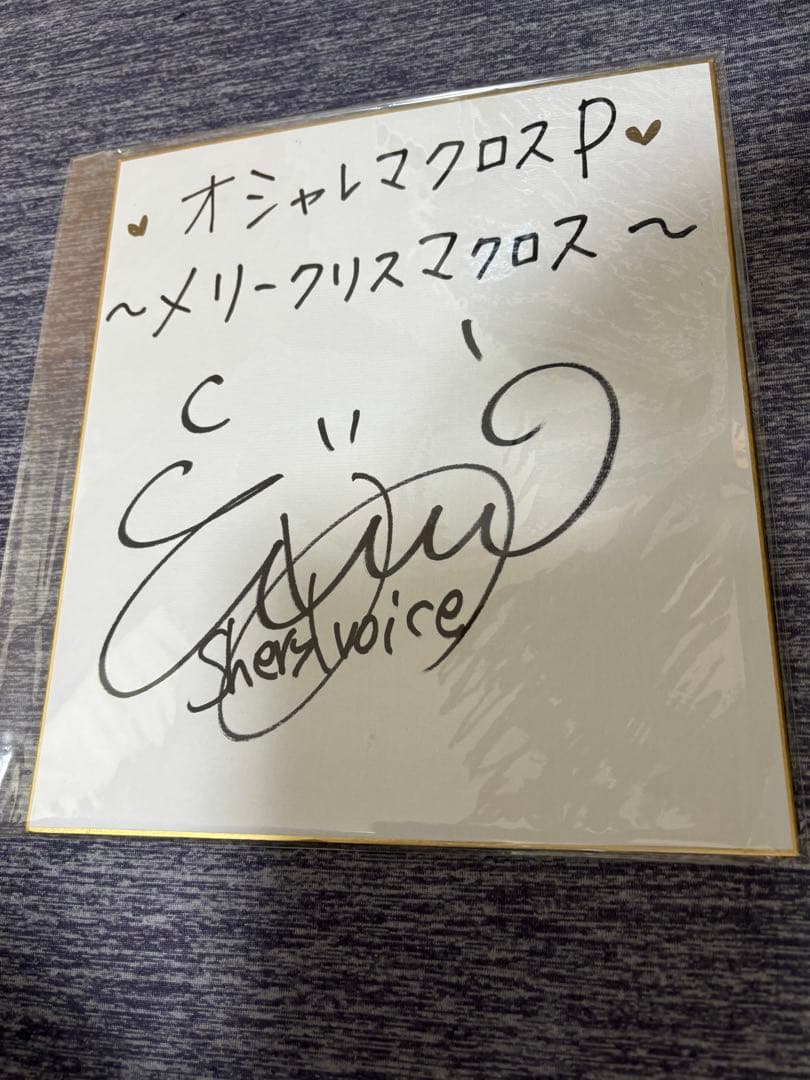 オシャレマクロスP
～メリークリスマクロス～
Sheryl voice